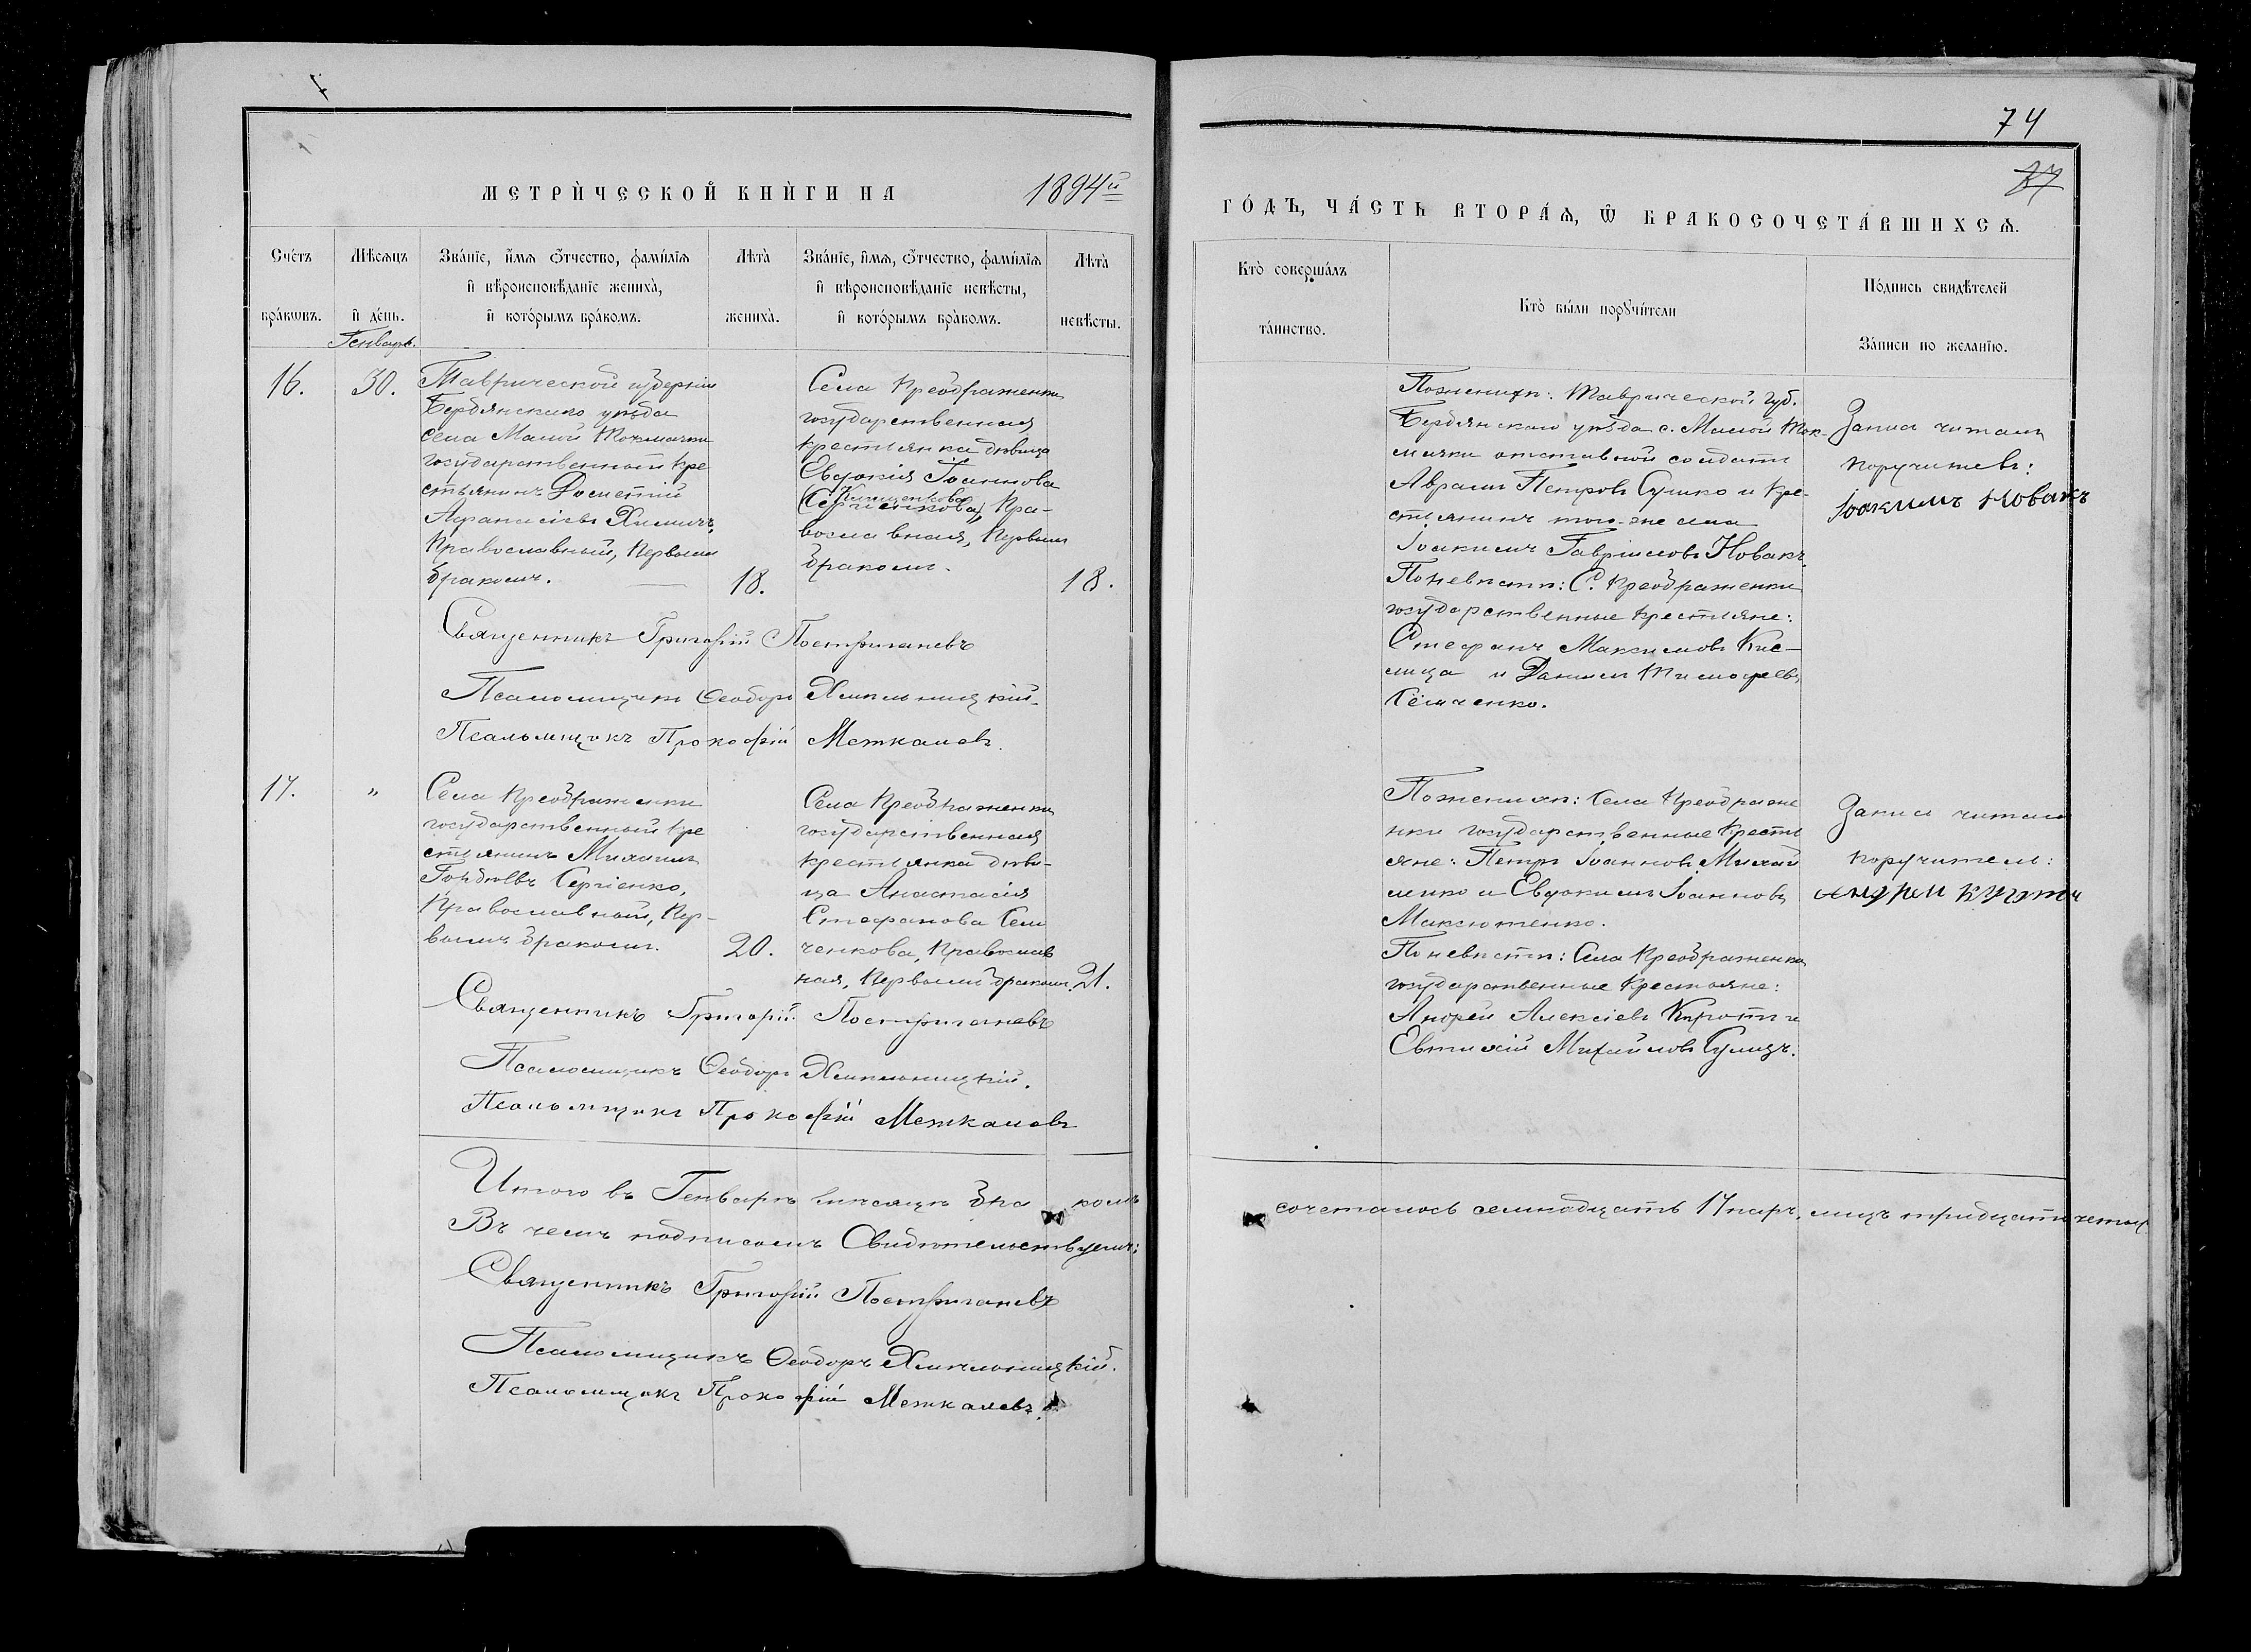 74
87
МЕТРИ́ЧЕСКОЙ КНИ́ГИ НА 1894й
ГО́ДЪ, ЧА́СТЬ ВТОРА́Ѧ, Ѿ БРАКОСОЧЕТА́ВШИХСѦ.
Сче́тъ бра́кѡвъ.
Мѣ́сѧцъ и҆ де́нь.
Зва́нїе, и҆́мѧ ѻ҆́тчество, фами́лїѧ
и҆ вѣроисповѣ́данїе жениха̀,
и҆ кото́рымъ бра́комъ.
Лѣ́та̀ жениха̀.
Зва́нїе, и҆́мѧ, ѻ҆́тчество, фами́лїѧ
и҆ вѣроисповѣ́данїе невѣ́сты,
и҆ кото́рымъ бра́комъ.
Лѣ́та̀ невѣ́сты.
Кто̀ соверша́лъ
та́инство.
Кто̀ бы́ли порꙋчи́тели
По́дпись свидѣ́телей
За́писи по жела́нїю.
Генварь.
16.
30.
Таврической губерніи
Бердянскаго уѣзда
села Малой Токмачки
государственный кре
стьянинъ Дометій
Афанасіевъ Химичъ,
православный, первымъ
бракомъ.
18.
Села Преображенки
государственная
крестьянка дѣвица
Евдокія Іоаннова
(Сергіенкова), пра-
вославная, первымъ
бракомъ.
18.
Священникъ Григорій Постригачевъ
Псаломщикъ Ѳеодоръ Хмельницкій.
Псаломщикъ Прокофій Межкалевъ.
По женихѣ: Таврической губ.
Бердянскаго уѣзда с. Малой Ток-
мачки отставной солдатъ
Аврамъ Петровъ Сушко и кре-
стьянинъ того-же села
Іоакимъ Гавріиловъ Новакъ.
По невѣстѣ: С. Преображенки
государственные крестьяне:
Стефанъ Максимовъ Кис-
лица и Даніилъ Тимофеевъ
Семченко.
Запись читалъ
поручитель:
Іоакимъ Новакъ
17.
"
Села Преображенки
государственный кре
стьянинъ Михаилъ
Гордѣевъ Сергіенко,
православный, пер-
вымъ бракомъ.
20.
Села Преображенки
государственная
крестьянка дѣви-
ца Анастасія
Стефанова Сем
ченкова, православ
ная, первымъ бракомъ.
21.
Священникъ Григорій Постригачевъ
Псаломщикъ Ѳеодоръ Хмельницкій.
Псаломщикъ Прокофій Межкалевъ
По женихѣ: Села Преображе
нки государственные кресть
яне: Петръ Іоанновъ Михай
ленко и Евдокимъ Іоанновъ
Максютенко.
По невѣстѣ: Села Преображенки
государственные крестьяне:
Андрей Алексіевъ и
Евтихій Михайловъ
Запись читалъ
поручитель:
Андрей
Итого въ Генварѣ мѣсяцѣ бра комъ сочеталось семнадцать 17 паръ, лицъ тридцать четыр
Въ чемъ подписомъ свидѣтельствуемъ:
Священникъ Григорій Постригачевъ
Псаломщикъ Ѳеодоръ Хмельницкій.
Псаломщикъ Прокофій Межкалевъ.